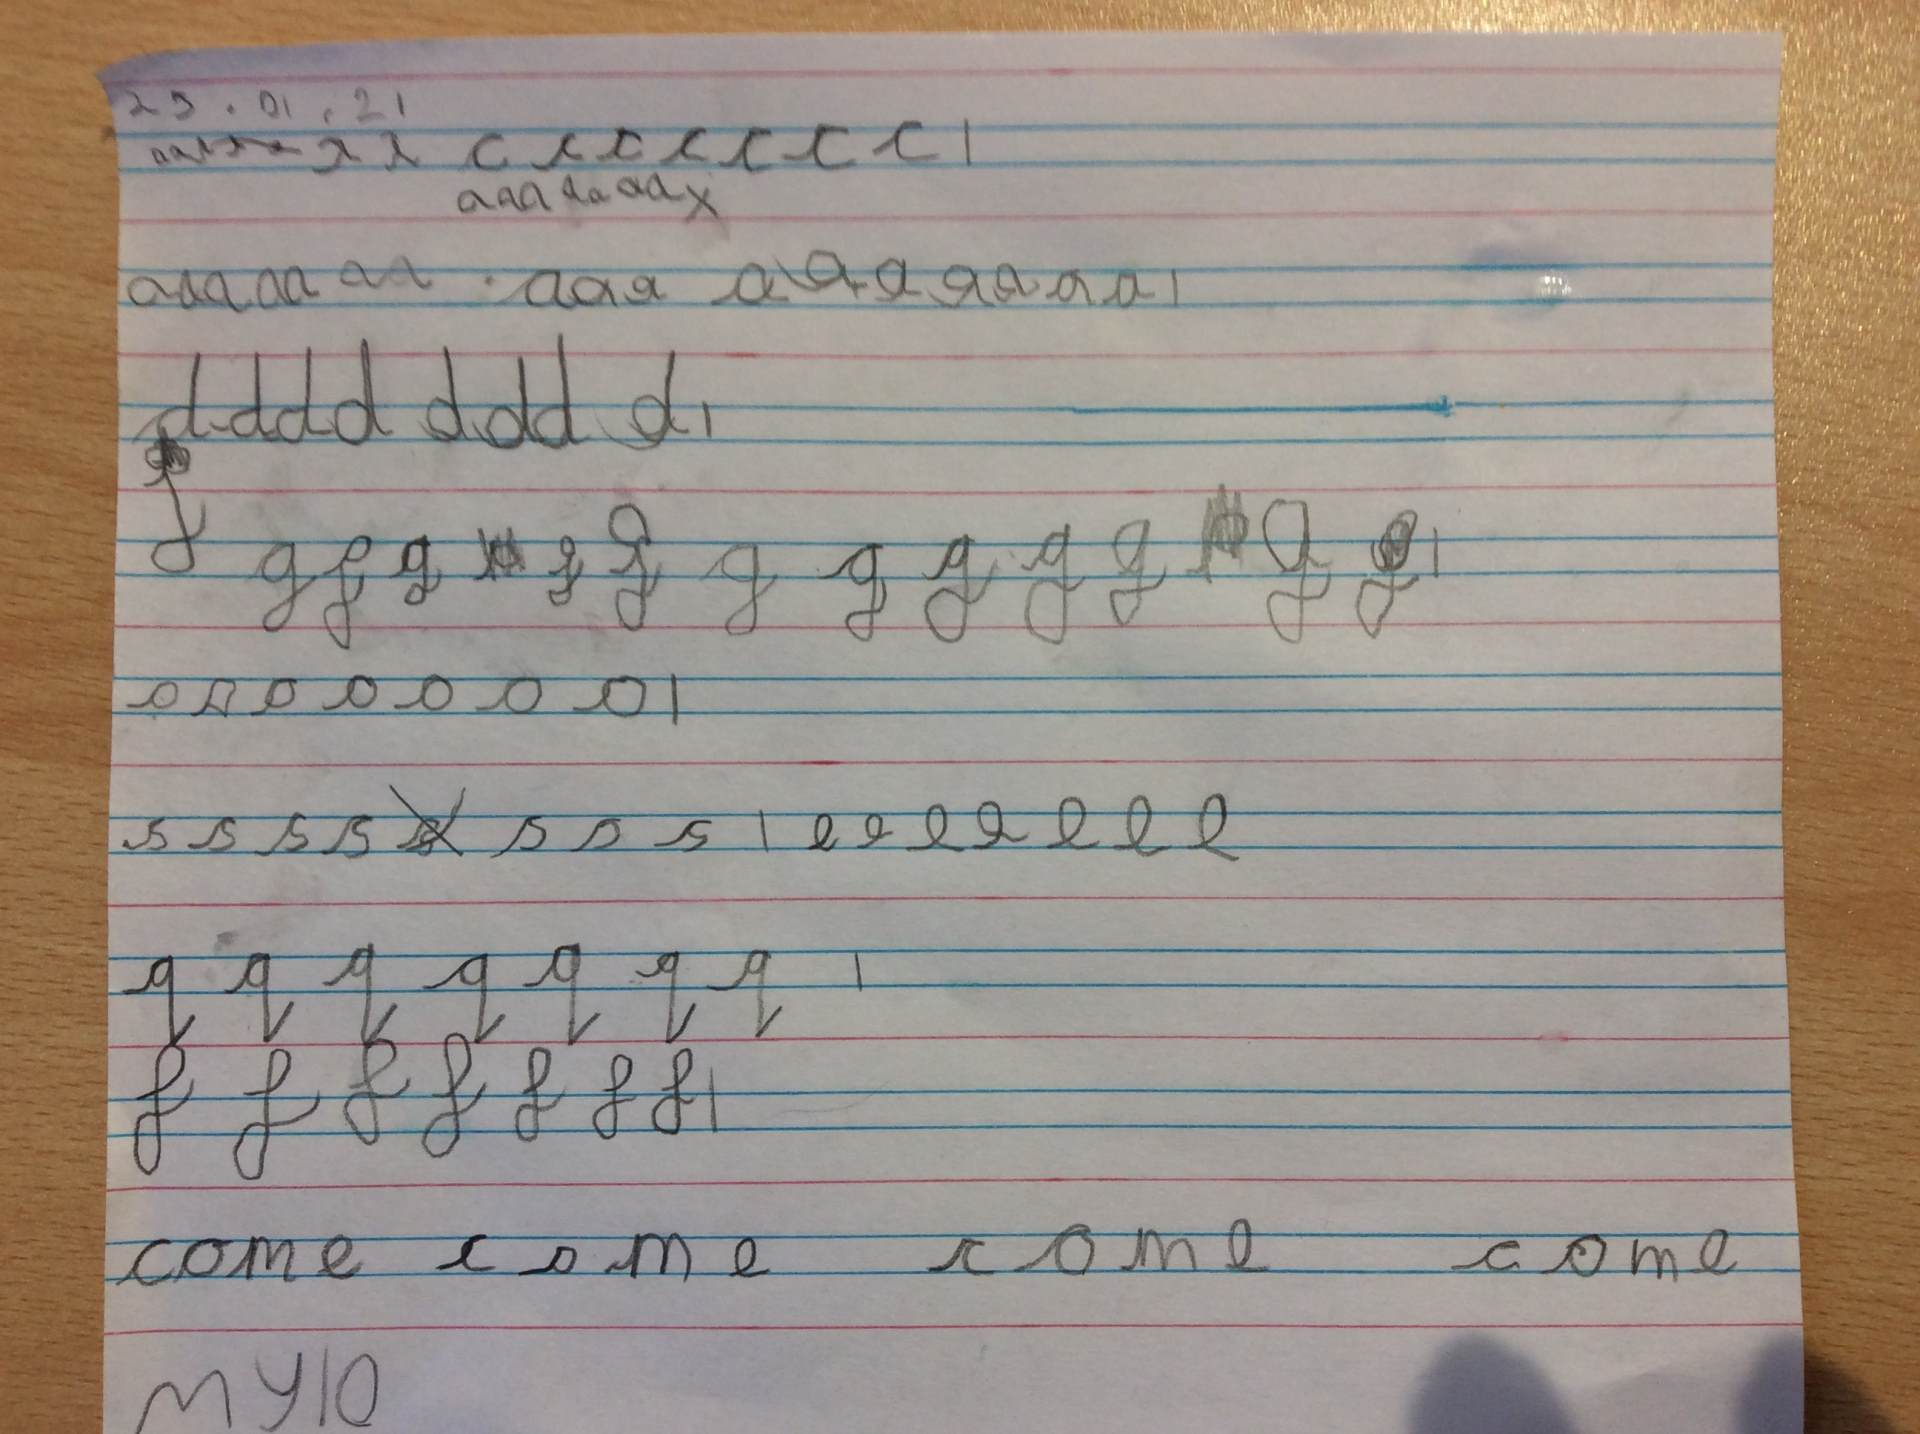 25.01.21
c c c c c c c |
aaa aa aa x
aaa aa aa . aaa a a a a a a a |
d d d d d d d d |
g g g g g g g g g g g g
o o o o o o o |
s s s s s s s s | e e e e e e e
q q q q q q q |
f f f f f f f |
come come come come
MY10